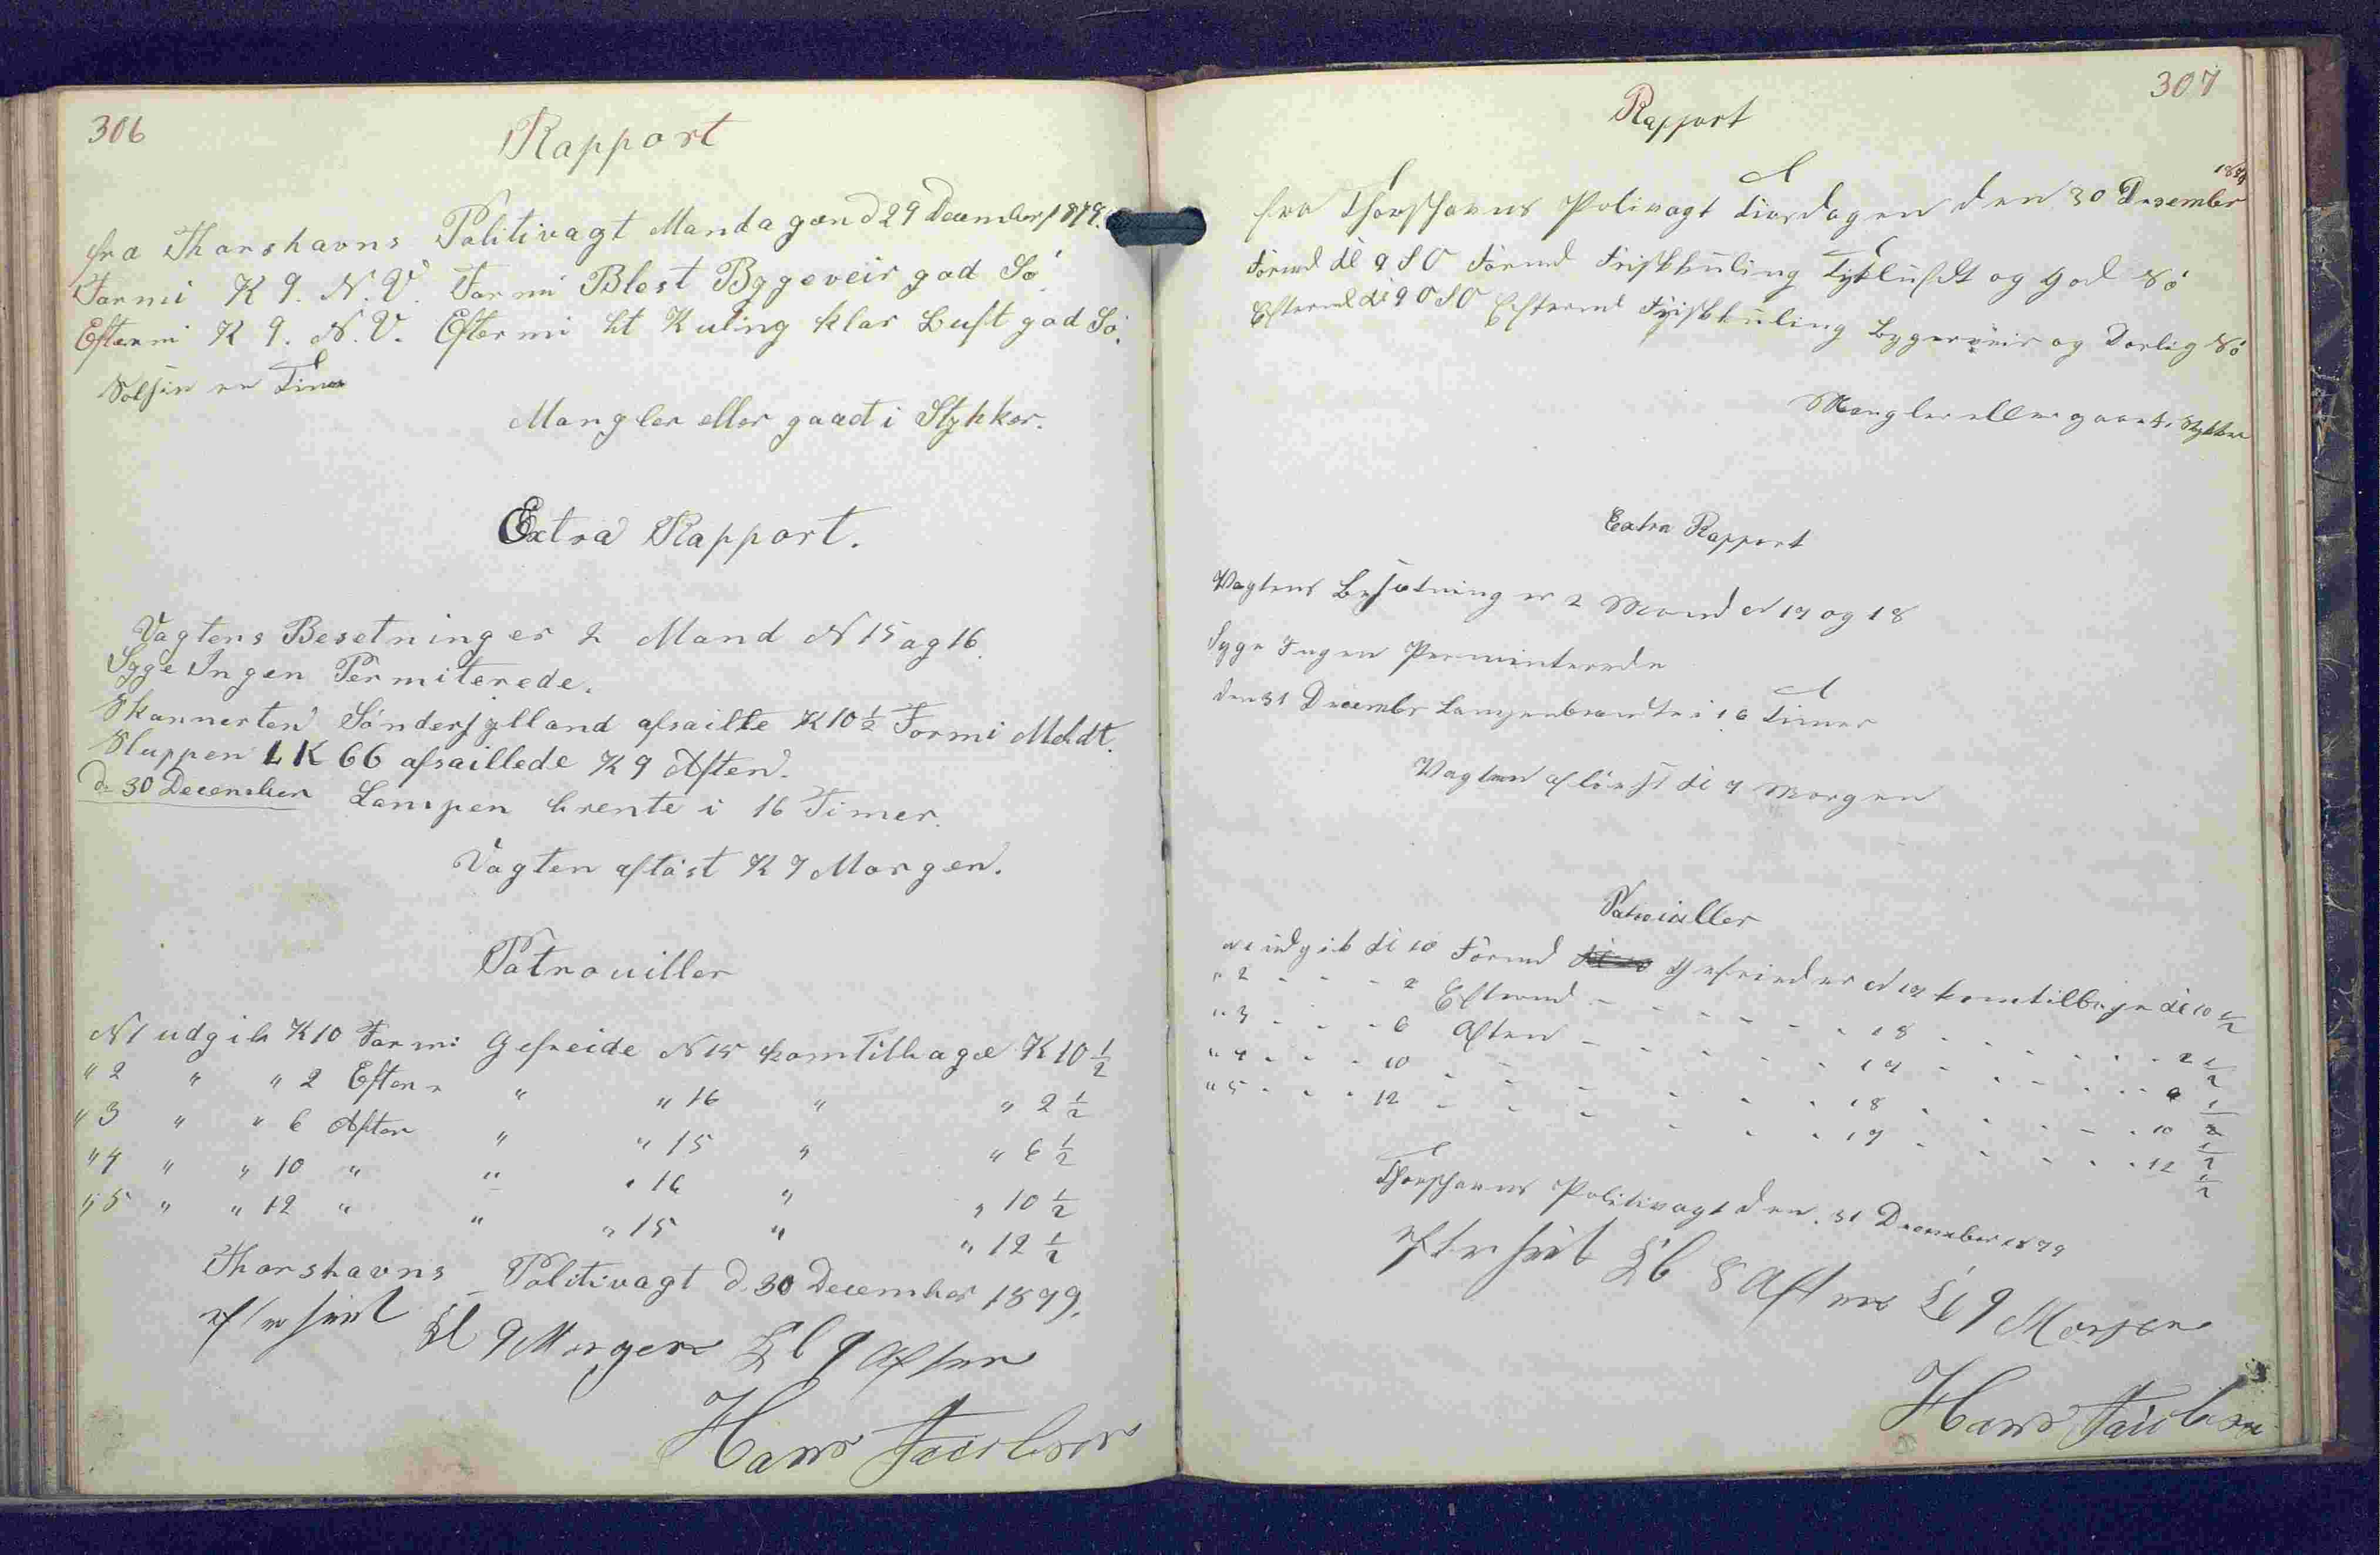 306
Rapport
fra Thorshavns Politivagt Mandagen d 29 December 1879.
Formi K 9. N. V. Formi Blest Byggeveir god Sö.
Eftermi K 9. N. V. Eftermi lit Kuling klar Luft god Sö.
Solsin en Time
Mangler eller gaaet i Stykker.
Extra Rapport.
Vagtens Besetning er 2 Mand N 15 og 16.
Syge Ingen Permiterede.
Skonnerten Sönderjylland afsailte K 10 1/2 Formi Meldt.
Sluppen LK 66 afsaillede K 9 Aften.
d. 30 December Lampen brente i 16 Timer.
Vagten aflöst K 9 Morgen.
Patrouiller
N 1 udgik K 10 Formi Gefreide N 15 kom Tilbage K 10 1/2
" 2 " " 2 Efterm " " 16 " " 2 1/2
" 3 " " 6 Aften " " 15 " " 6 1/2
" 4 " " 10 " " " 16 " " 10 1/2
" 5 " " 12 " " " 15 " " 12 1/2
Thorshavns Politivagt d. 30 December 1879.
efterseet Kl 9 Morgen Kl 9 Aften
Hans Jacobsen
307
Rapport
1879
fra Thorshavns Polivagt Tirsdagen den 30 Desember
Formd Kl 9 SO Formd Friskkuling Tykluft og God Sö
Eftermd Kl 9 OSO Eftermd Friskkuling Bygeveir og Daarlig Sö
Mangler eller gaaet i Stykker
Extra Rapport
Vagtens Besætning er 2 Mand N 17 og 18
Syge Ingen Perminterede
den 31 Decembr Lampen brændte i 16 Timer
Vagten aflöest Kl 9 Morgen
Patroiuller
N 1 udgik Kl 10 Formd Gefreider N 17 kom tilbage Kl 10 1/2
" 2 - - - 2 Eftermd - - - - - 18 - - - - - 2 1/2
" 3 - - - 6 Aften - - - - - 17 - - - - - 6 1/2
" 4 - - - 10 - - - - - 18 - - - - - 10 1/2
" 5 - - - 12 - - - - - 17 - - - - - 12 1/2
Thorshavns Politivagt den 31 December 1879
efterseet Kl 8 Aften Kl 9 Morgen
Hans Jacobsen